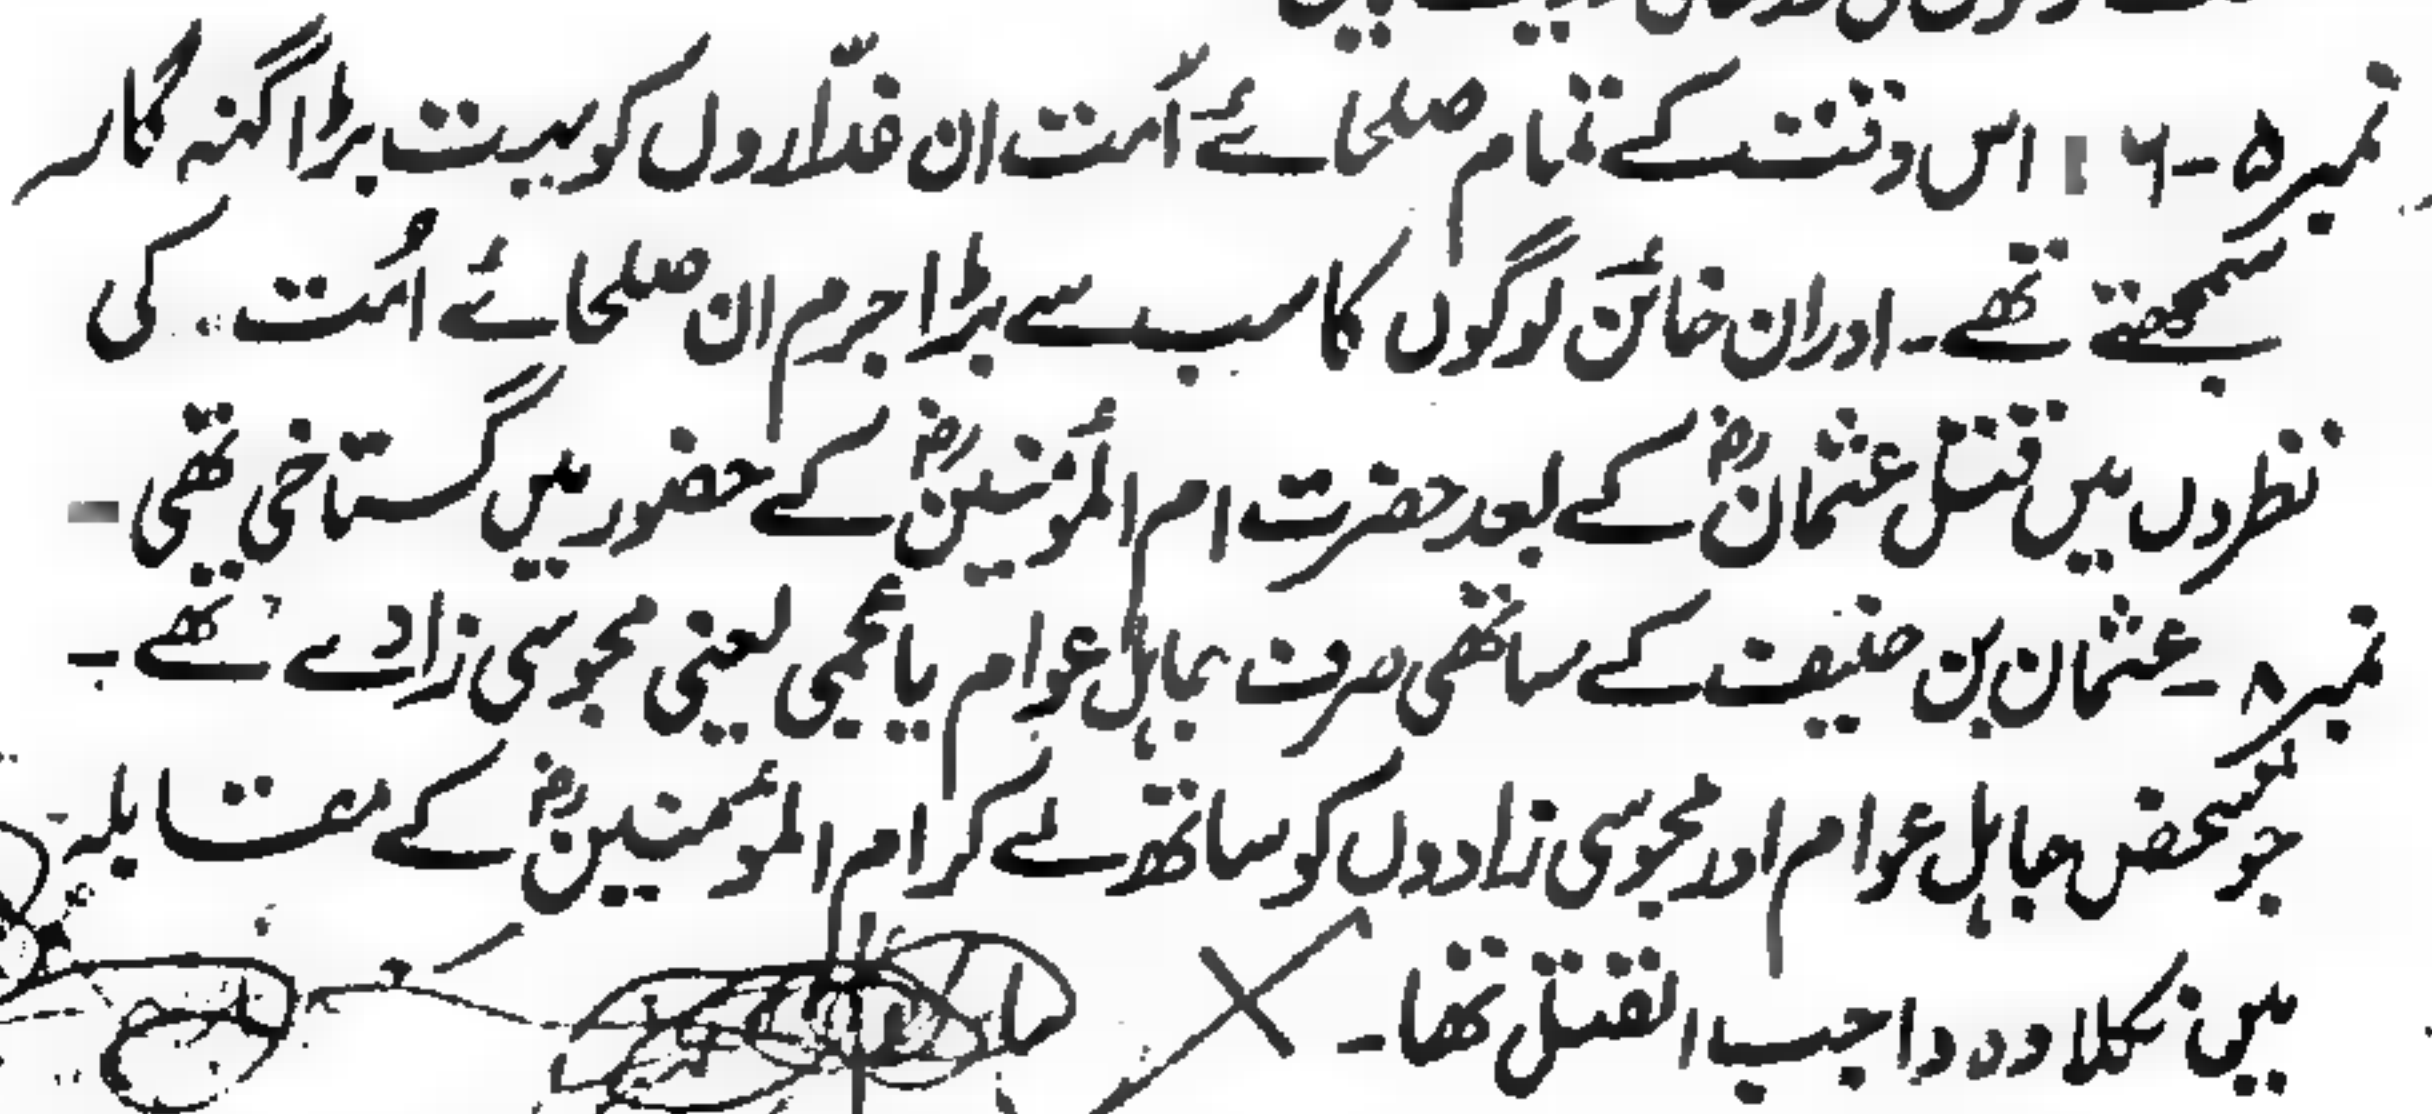 نمبر ۵-۶ : اس وقت کے تمام صلحائے اُمت ان غدّاروں کو بہت بڑا گنہ گار
سمجھتے تھے۔ اور ان خائن لوگوں کا سب سے بڑا جرم ان صلحائے اُمت کی
نظروں میں قتل عثمانؓ کے بعد حضرت ام المؤمنینؓ کے حضور میں گستاخی تھی۔
نمبر ۸ - عثمان بن حنیف کے ساتھی صرف جاہل عوام یا عجمی یعنی مجوسی زادے تھے۔
جو شخص جاہل عوام اور مجوسی زادوں کو ساتھ لے کر ام المؤمنینؓ کے مقابلہ
میں نکلا وہ واجب القتل تھا۔